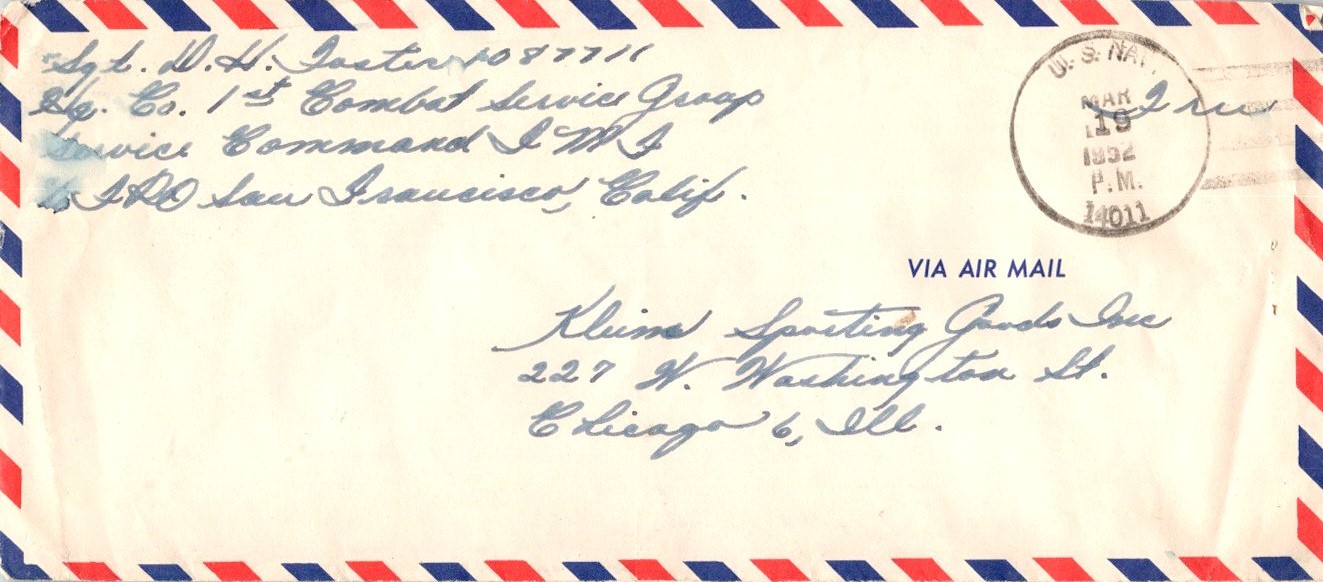 Sgt. D. H. Foster 1087711
Hq. Co. 1st Combat Service Group
Service Command F M F
℅ FPO San Francisco, Calif.
U.S. NAVY
MAR
19
1952
P.M.
14011
Free
VIA AIR MAIL
Kleins Sporting Goods Inc
227 W. Washington St.
Chicago 6, Ill.